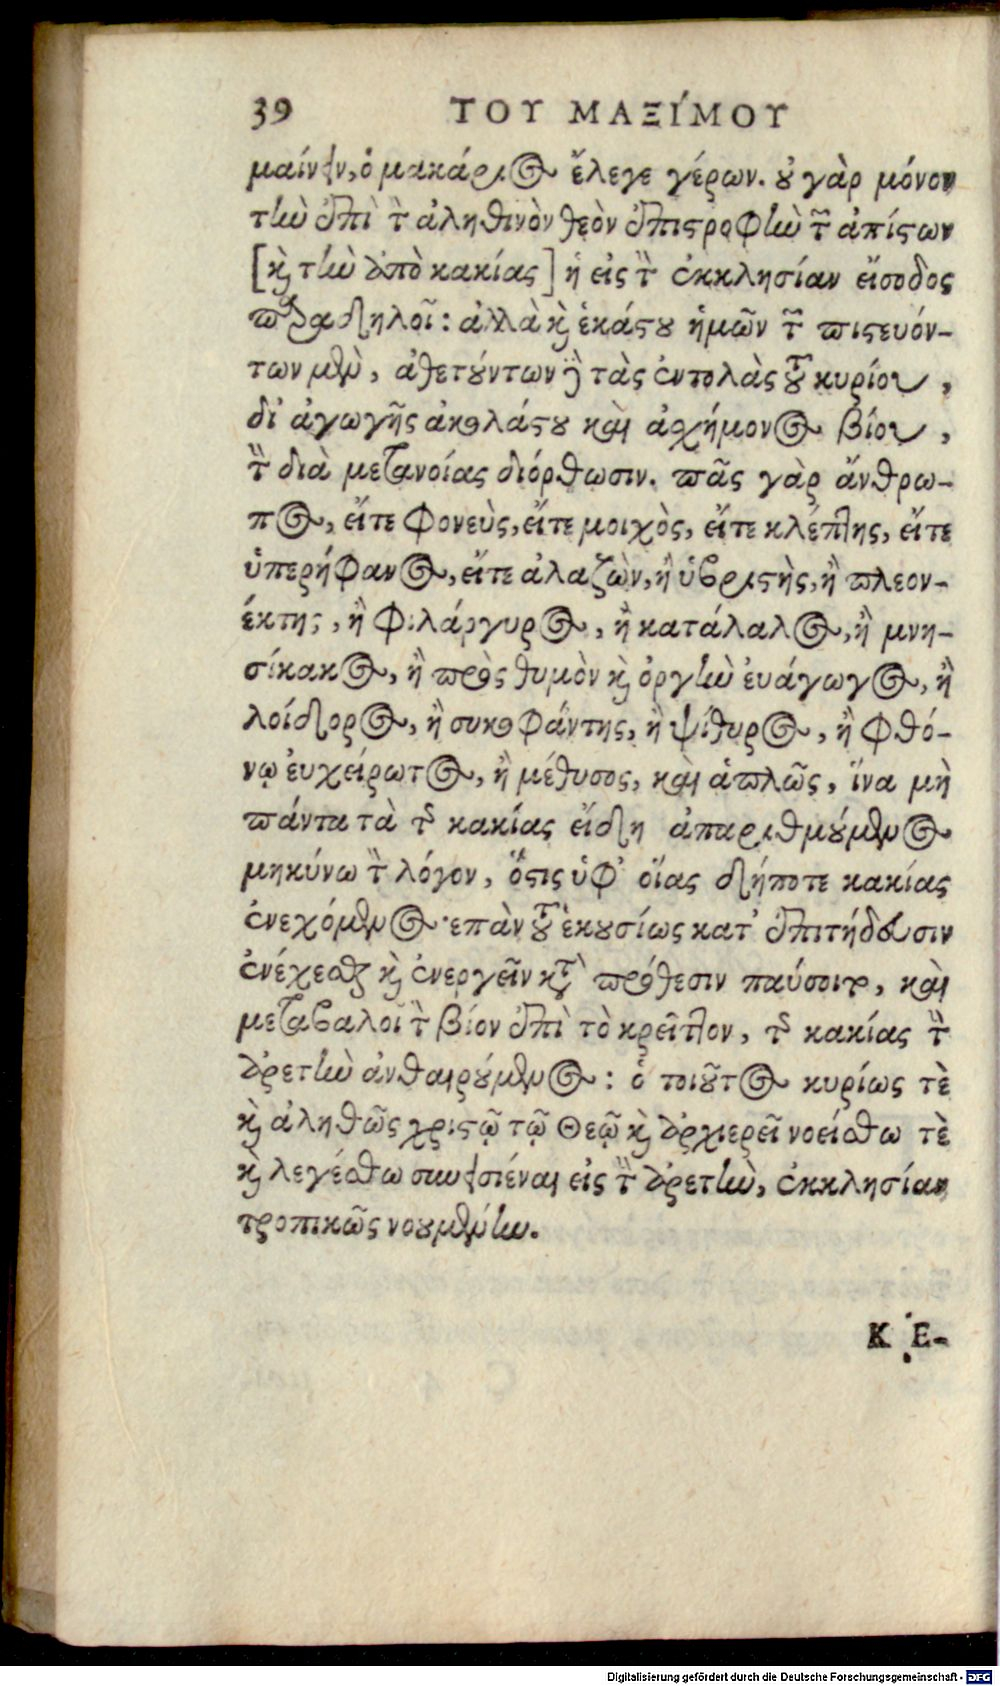 39 ΤΟΥ ΜΑΞΊΜΟΥ
μαίνειν, ὁ μακάριος ἔλεγε γέρων. οὐ γὰρ μόνον
τὴν ἐπὶ τὸν ἀληθινὸν θεὸν ἐπιστροφὴν τῶν ἀπίστων
[καὶ τὴν ἀπὸ κακίας] ἡ εἰς τὴν ἐκκλησίαν εἴσοδος
παραδηλοῖ: ἀλλὰ καὶ ἑκάστου ἡμῶν τῶν πιστευόν-
των μὲν, ἀθετούντων δὲ τὰς ἐντολὰς τοῦ κυρίου,
δι' ἀγωγῆς ἀκολάστου καὶ ἀσχήμονος βίου,
τὴν διὰ μετανοίας διόρθωσιν. πᾶς γὰρ ἄνθρω-
πος, εἴτε φονεὺς, εἴτε μοιχὸς, εἴτε κλέπτης, εἴτε
ὑπερήφανος, εἴτε ἀλαζὼν, ἢ ὑβριστὴς, ἢ πλεον-
έκτης, ἢ φιλάργυρος, ἢ κατάλαλος, ἢ μνη-
σίκακος, ἢ πρὸς θυμὸν καὶ ὀργὴν εὐάγωγος, ἢ
λοίδορος, ἢ συκοφάντης, ἢ ψίθυρος, ἢ φθό-
νῳ εὐχείρωτος, ἢ μέθυσος, καὶ ἁπλῶς, ἵνα μὴ
πάντα τὰ τῆς κακίας εἴδη ἀπαριθμούμενος
μηκύνω τὸν λόγον, ὅστις ὑφ' οἵας δήποτε κακίας
ἐνεχόμενος· ἐπὰν τοῦ ἑκουσίως κατ' ἐπιτήδευσιν
ἐνέχεσθαι καὶ ἐνεργεῖν κατὰ πρόθεσιν παύσοιτο, καὶ
μεταβαλοῖ τὸν βίον ἐπὶ τὸ κρεῖττον, τῆς κακίας τὴν
ἀρετὴν ἀνθαιρούμενος: ὁ τοιοῦτος κυρίως τὲ
καὶ ἀληθῶς χριστῷ τῷ Θεῷ καὶ ἀρχιερεῖ νοείσθω τὲ
καὶ λεγέσθω συνεισιέναι εἰς τὴν ἀρετὴν, ἐκκλησίαν
τροπικῶς νουμένην.
ΚΕ-
Digitalisierung gefördert durch die Deutsche Forschungsgemeinschaft - DFG